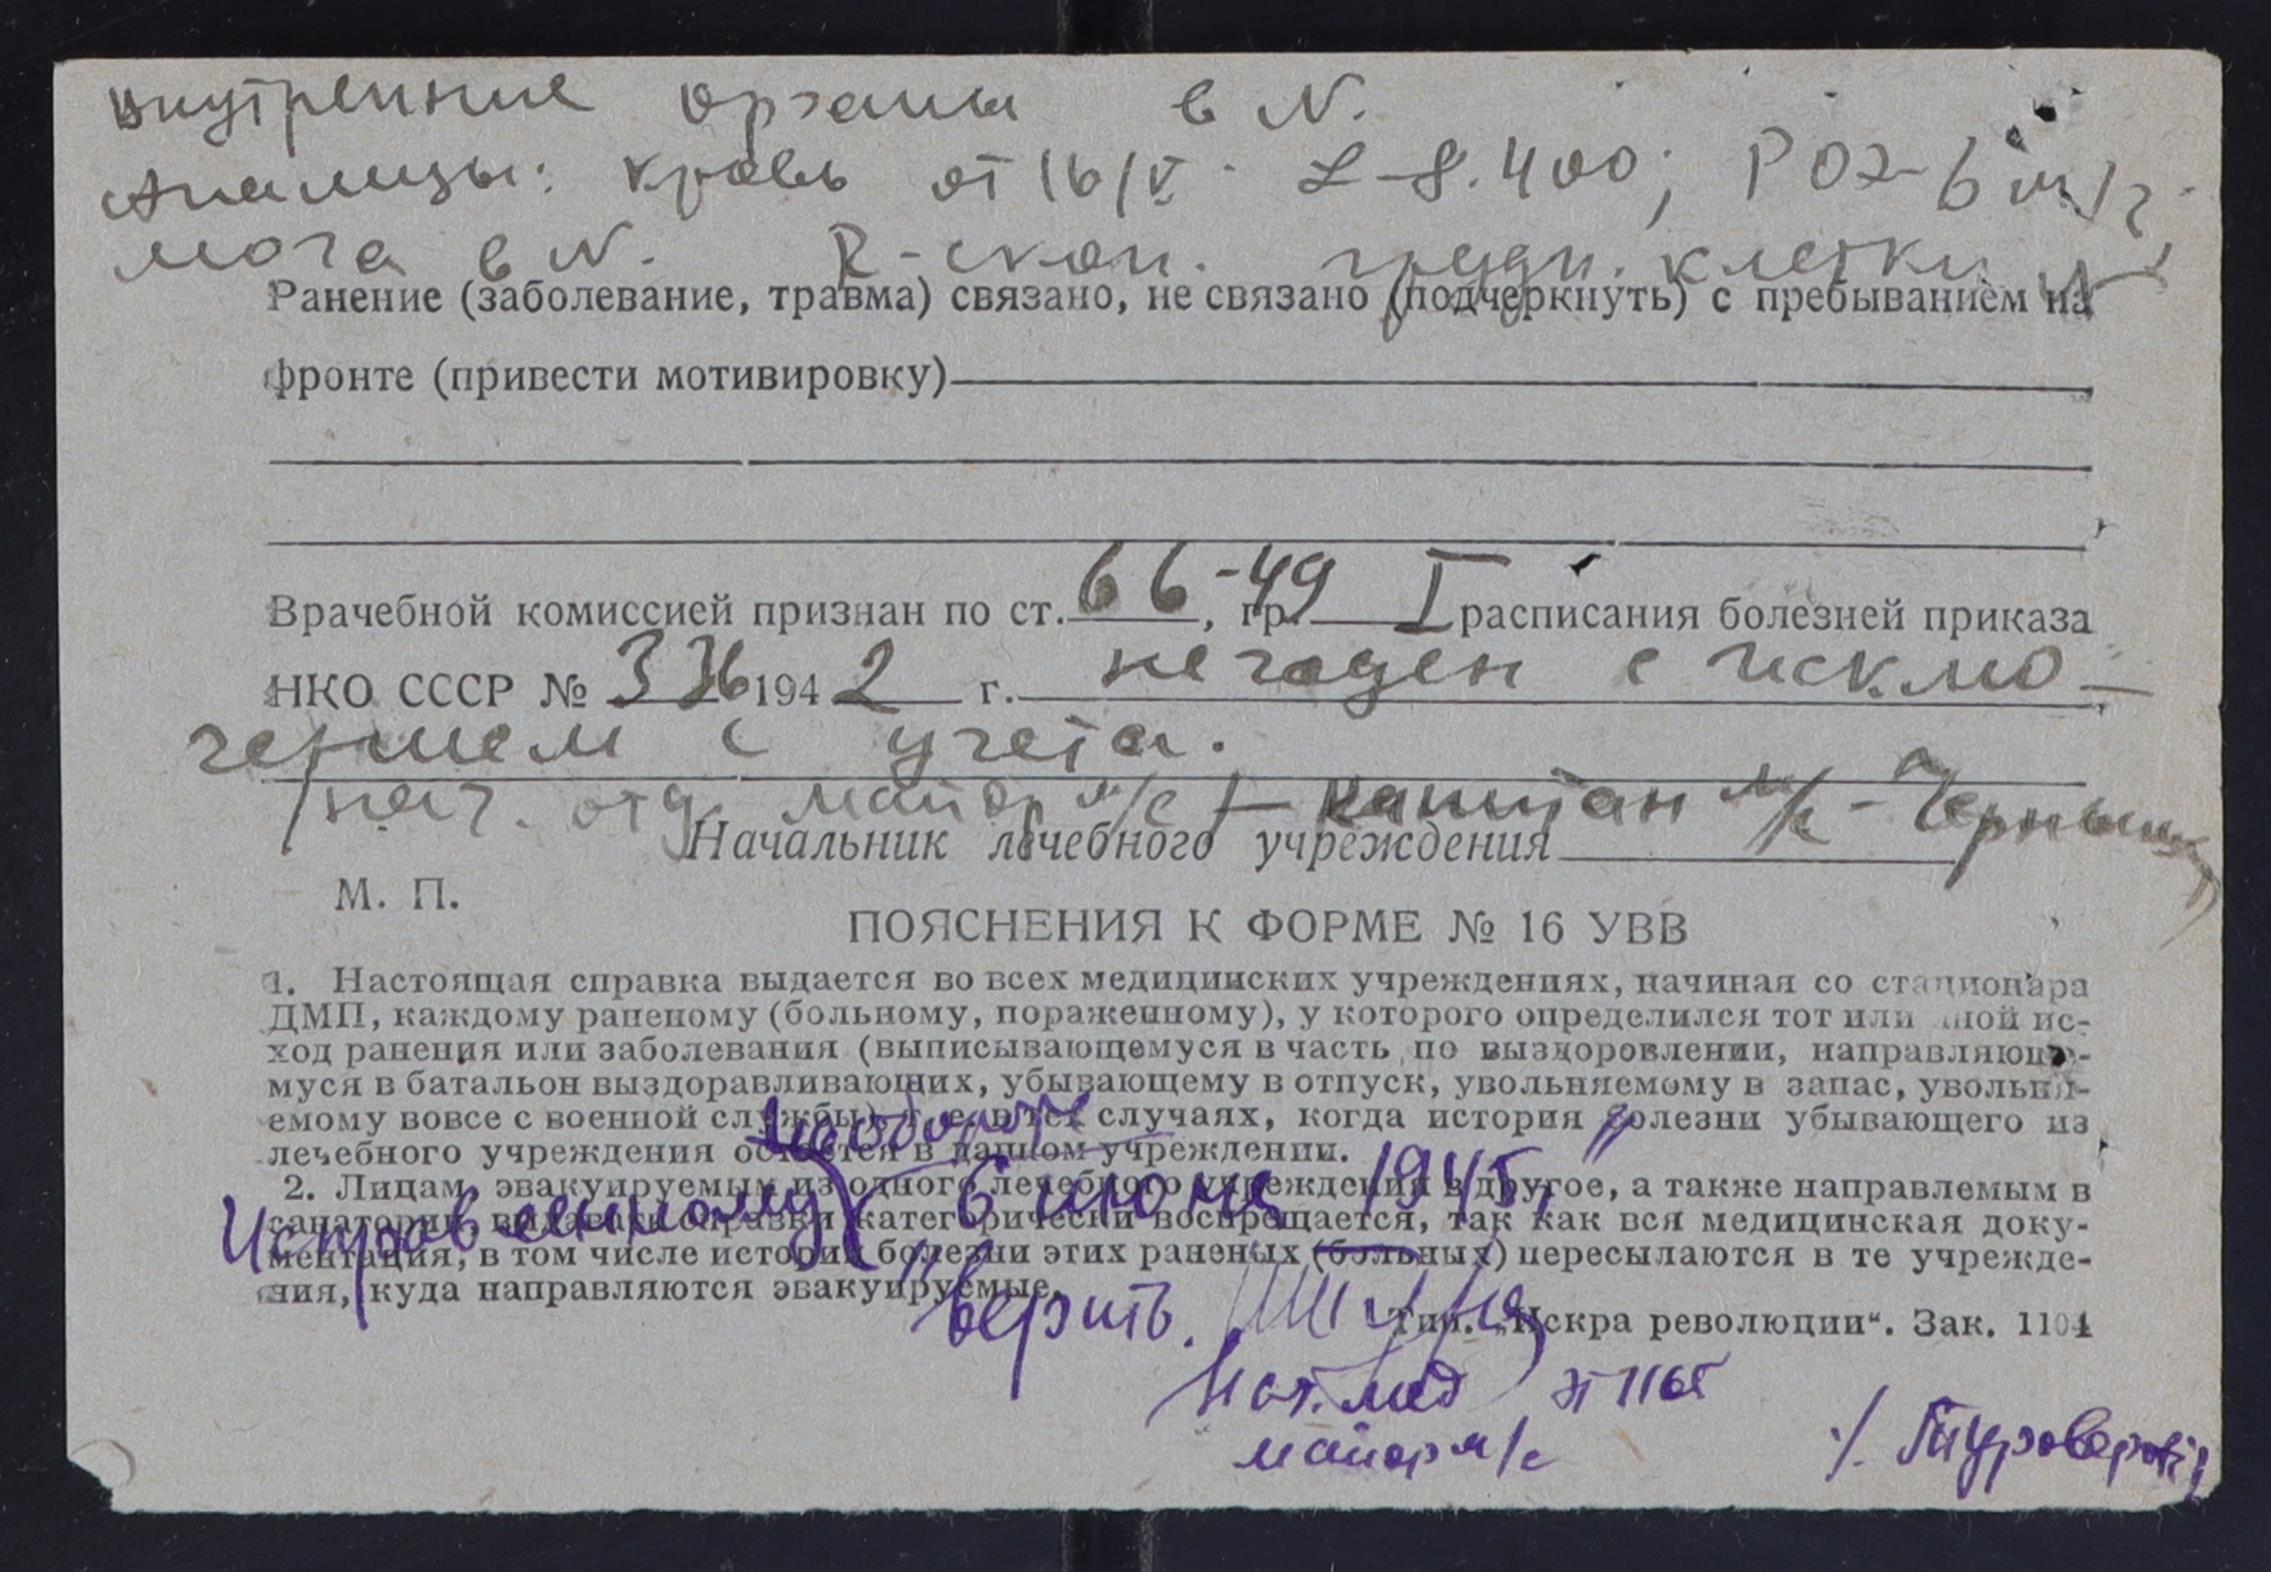 внутренние органы в N.
Анализы: кровь от 16/V. L-8.400; РОЭ-6 м/ч,
моча в N. R-скоп. грудн. клетки N
Ранение (заболевание, травма) связано, не связано (подчеркнуть) с пребыванием на
фронте (привести мотивировку)
Врачебной комиссией признан по ст. 66-49, гр. I расписания болезней приказа
НКО СССР № 336 1942 г. не годен с исклю-
чением с учета.
нач. отд. майор м/с - капитан м/с -
Начальник лечебного учреждения
М. П.
ПОЯСНЕНИЯ К ФОРМЕ № 16 УВВ
1. Настоящая справка выдается во всех медицинских учреждениях, начиная со стационара
ДМП, каждому раненому (больному, пораженному), у которого определился тот или иной ис-
ход ранения или заболевания (выписывающемуся в часть по выздоровлении, направляюще-
муся в батальон выздоравливающих, убывающему в отпуск, увольняемому в запас, увольня-
емому вовсе с военной службы), т. е. в тех случаях, когда история болезни убывающего из
лечебного учреждения остается в данном учреждении.
2. Лицам, эвакуируемым из одного лечебного учреждения в другое, а также направлемым в
санатории, выдавать справки категорически воспрещается, так как вся медицинская доку-
ментация, в том числе истории болезни этих раненых (больных) пересылаются в те учрежде-
ния, куда направляются эвакуируемые.
Тип. „Искра революции“. Зак. 1104
на обороте
Исправленному „6 июня 1945"
верить.
Нач. мед ЭГ 1165
майор м/с